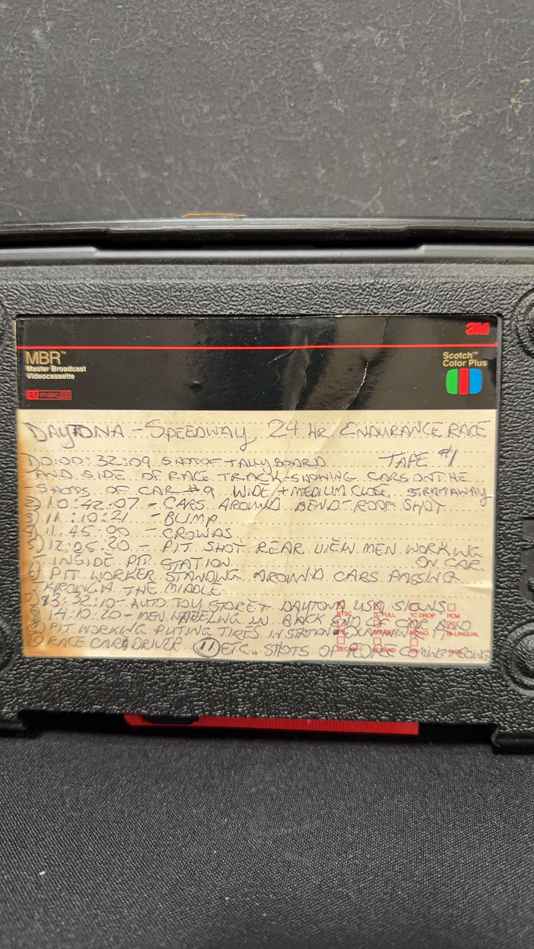 3M
MBR™
Master Broadcast
Videocassette
Scotch™
Color Plus
DAYTONA - SPEEDWAY 24 HR ENDURANCE RACE
00:00:32:09 SHOT OF TALLY BOARD TAPE #1
AND SIDE OF RACE TRACK SHOWING CARS ON THE
SHOTS OF CAR #9 WIDE + MEDIUM CLOSE.
10:42:07 - CARS AROUND BEND - ROOM SHOT
11:10:21 - BUMP
11:45:00 - CROWDS
12:05:20 - PIT SHOT REAR VIEW MEN WORKING
INSIDE PIT STATION ON CAR.
PIT WORKER STANDING AROUND CARS PASSING
THROUGH THE MIDDLE
13:32:10 - AUTO TOY STORE + DAYTONA USA SIGNS
14:10:20 - MEN KNEELING IN BACK END OF CAR AND
PIT WORKING PUTING TIRES IN
RACE CAR DRIVER 11 ETC. SHOTS OF